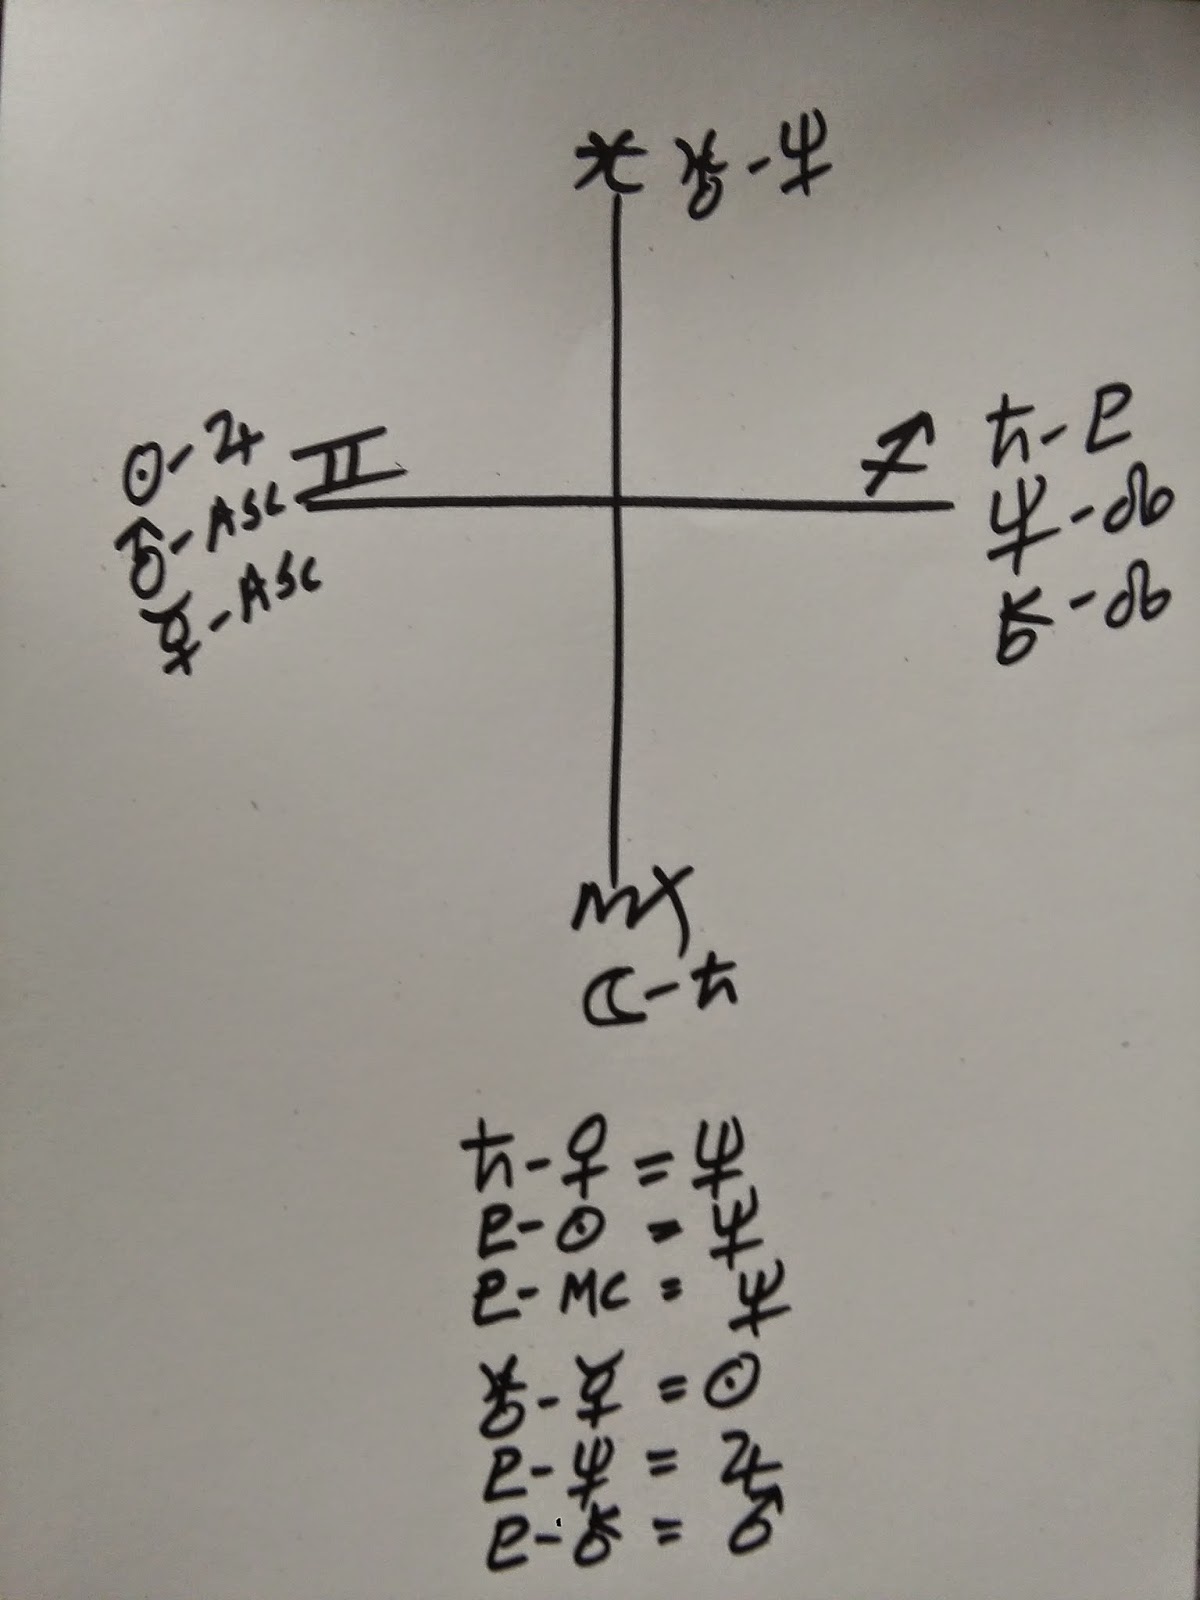 ♓ ♅-♆
☉-♃ ♊
♂-ASC
☿-ASC
♐ ♄-♇
♆-☊
⚷-☊
♍
☾-♄
♄-♀=♆
♇-☉=♆
♇-MC=♆
♅-☿=☉
♇-♆=♃
♇-⚷=♂